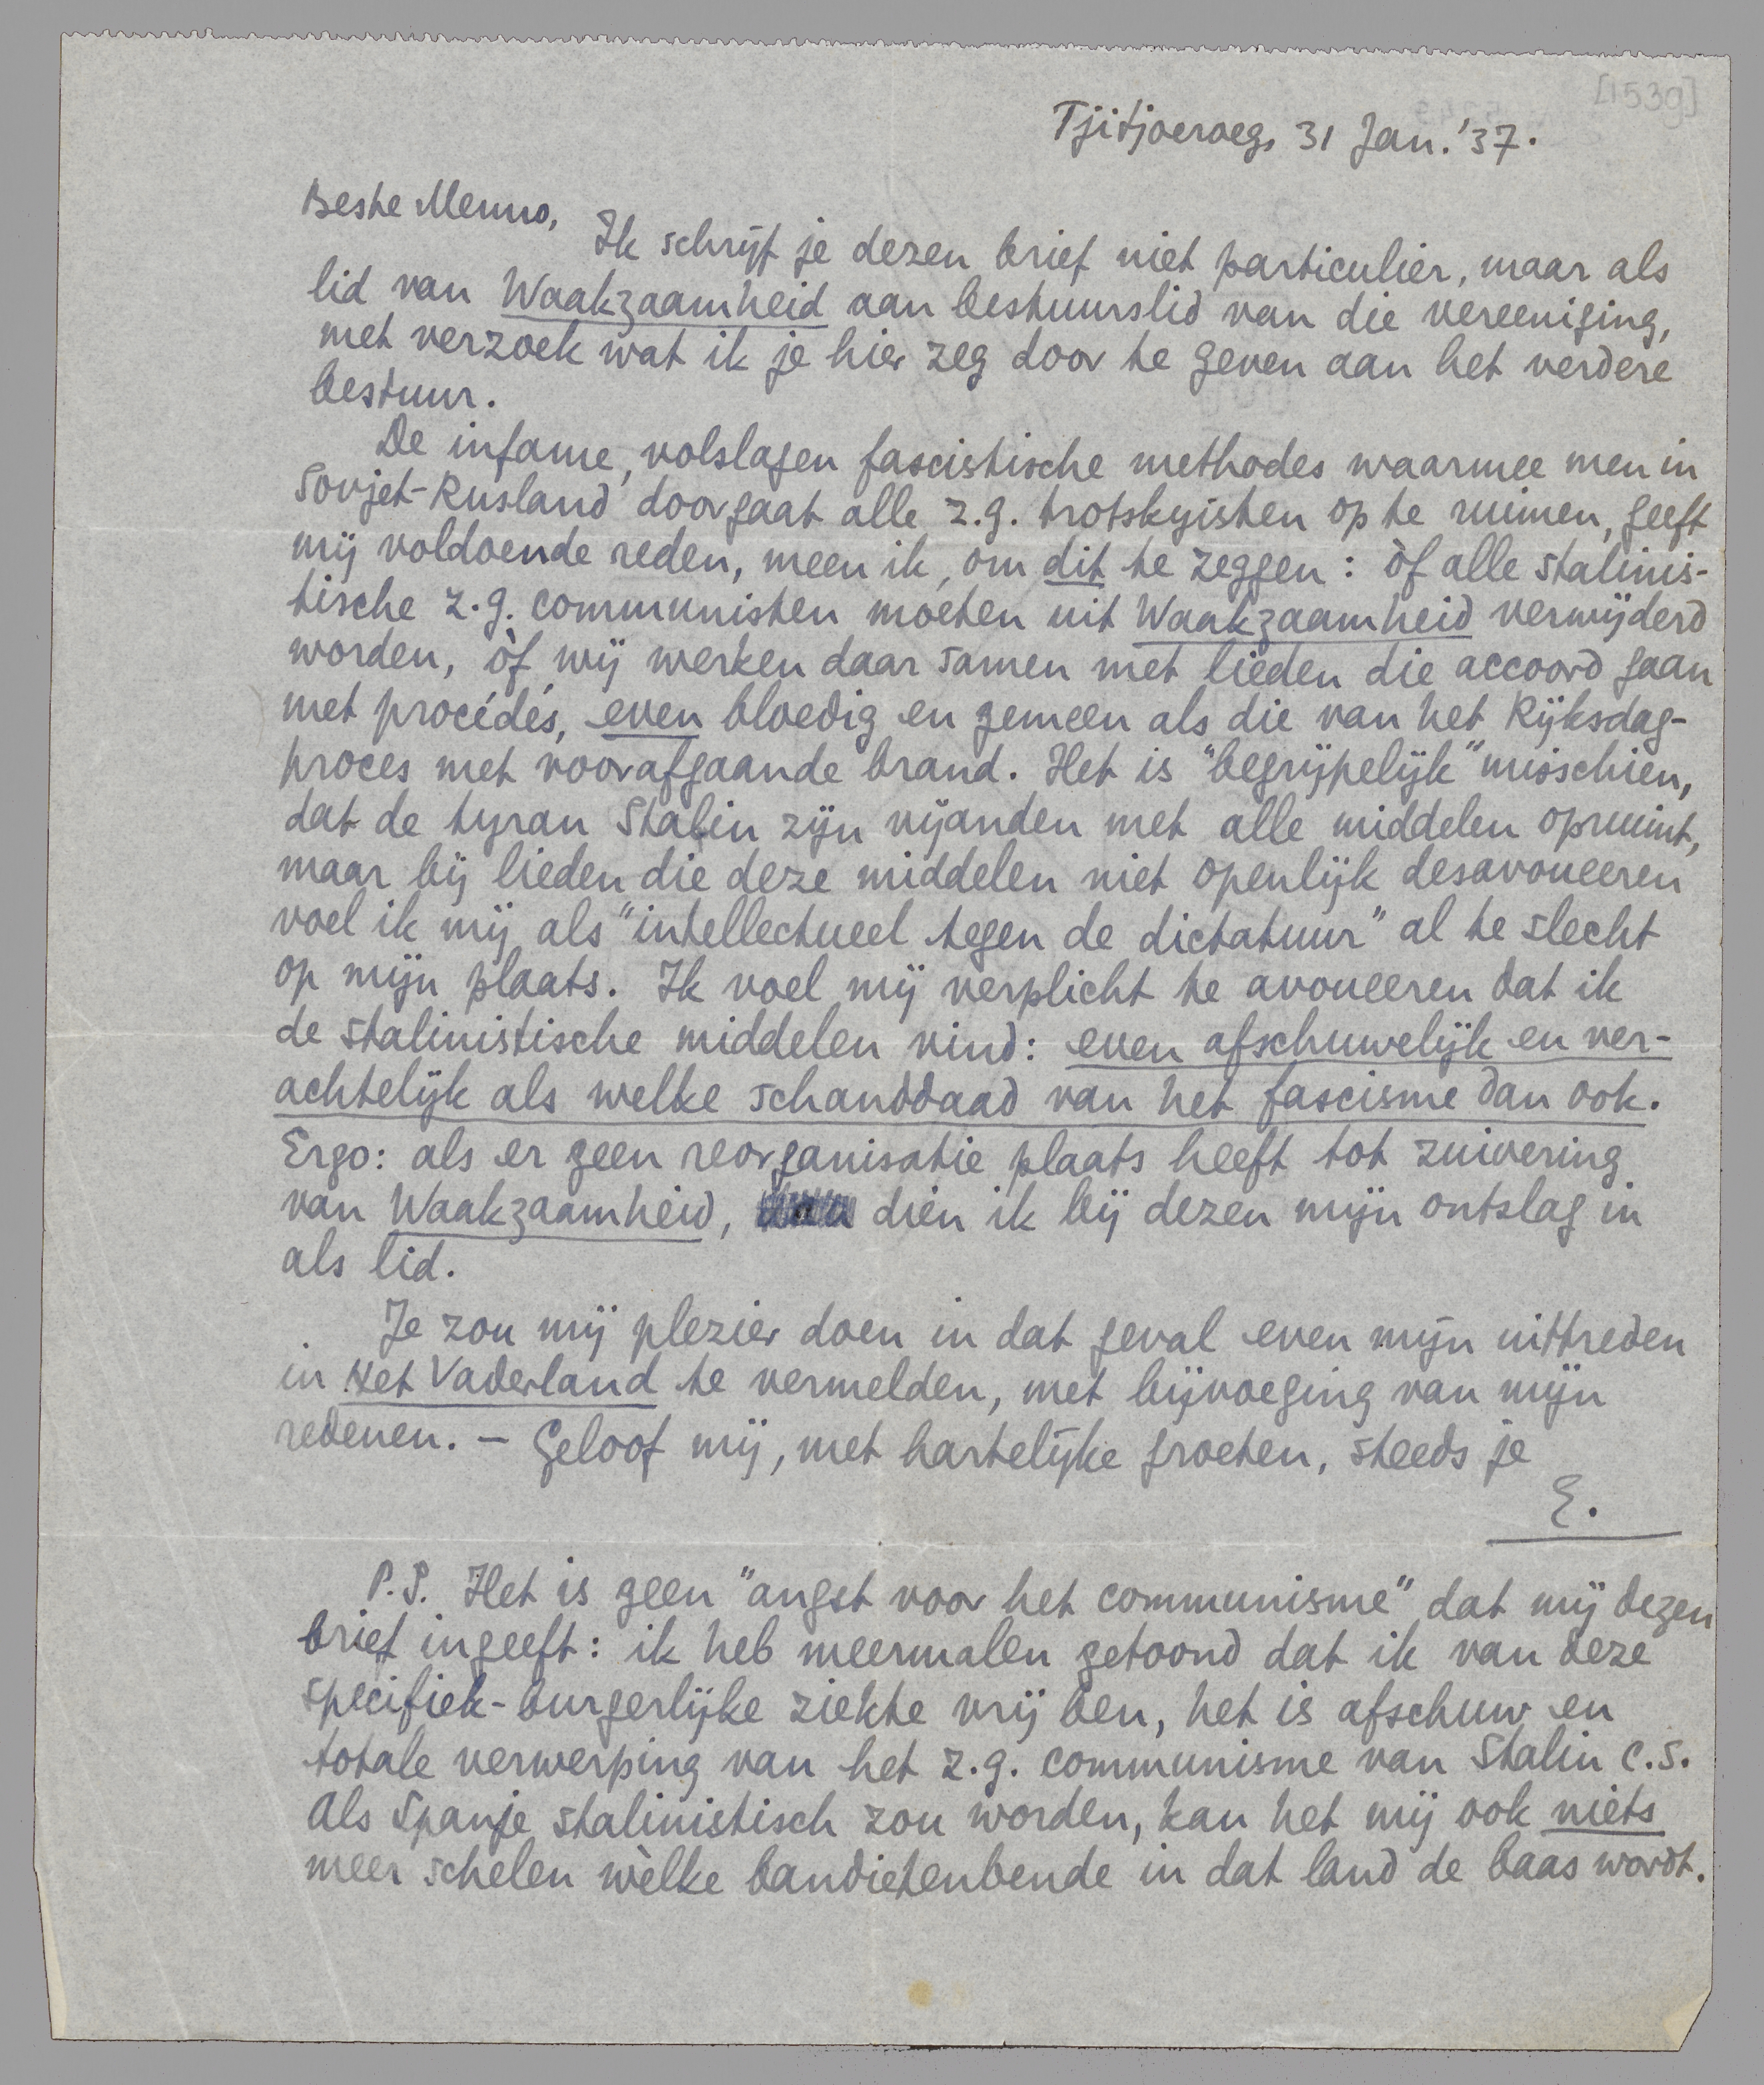 [1539]
Tjitjoeroeg, 31 Jan. '37.
Beste Menno,
Ik schrijf je dezen brief niet particulier, maar als
lid van Waakzaamheid aan bestuurslid van die vereeniging,
met verzoek wat ik je hier zeg door te geven aan het verdere
bestuur.
De infame, volslagen fascistische methodes waarmee men in
Sovjet-Rusland doorgaat alle z.g. trotskyisten op te ruimen, geeft
mij voldoende reden, meen ik, om dit te zeggen: òf alle stalinis-
tische z.g. communisten moeten uit Waakzaamheid verwijderd
worden, òf wij werken daar samen met lieden die accoord gaan
met procédés, even bloedig en gemeen als die van het Rijksdag-
proces met voorafgaande brand. Het is "begrijpelijk" misschien,
dat de tyran Stalin zijn vijanden met alle middelen opruimt,
maar bij lieden die deze middelen niet openlijk desavoueeren
voel ik mij als "intellectueel tegen de dictatuur" al te slecht
op mijn plaats. Ik voel mij verplicht te avoueeren dat ik
de stalinistische middelen vind: even afschuwelijk en ver-
achtelijk als welke schanddaad van het fascisme dan ook.
Ergo: als er geen reorganisatie plaats heeft tot zuivering
van Waakzaamheid, dien ik bij dezen mijn ontslag in
als lid.
Je zou mij plezier doen in dat geval even mijn uittreden
in Het Vaderland te vermelden, met bijvoeging van mijn
redenen. – Geloof mij, met hartelijke groeten, steeds je
E.
P.S. Het is geen "angst voor het communisme" dat mij dezen
brief ingeeft: ik heb meermalen getoond dat ik van deze
specifiek-burgerlijke ziekte vrij ben, het is afschuw en
totale verwerping van het z.g. communisme van Stalin c.s.
Als Spanje stalinistisch zou worden, kan het mij ook niets
meer schelen wèlke bandietenbende in dat land de baas wordt.